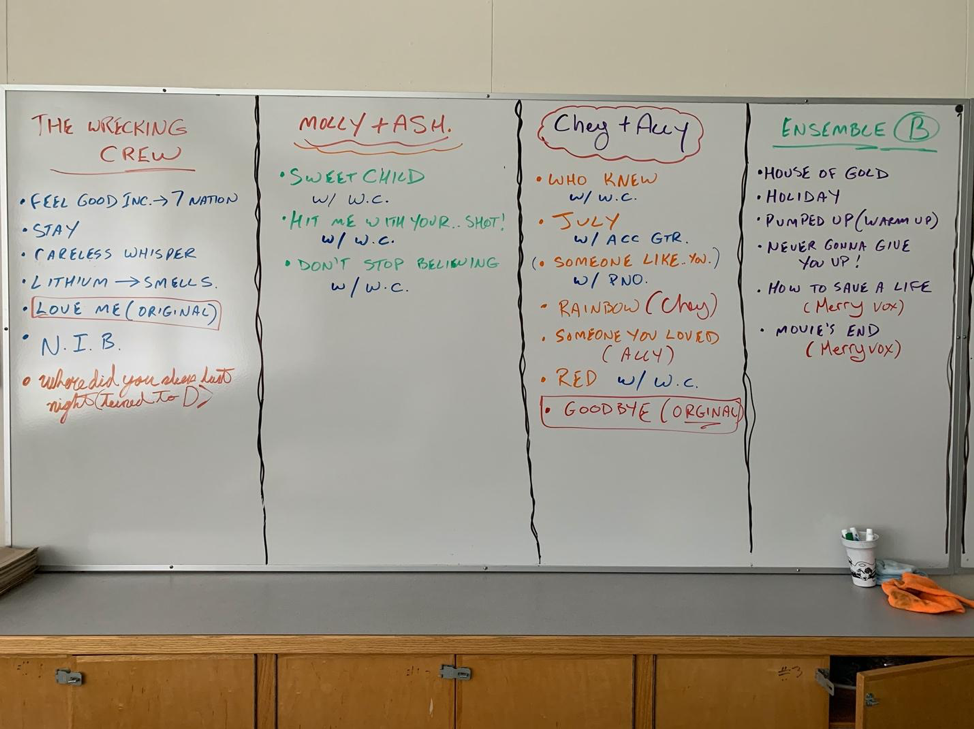 THE WRECKING
CREW
• FEEL GOOD INC. → 7 NATION
• STAY
• CARELESS WHISPER
• LITHIUM → SMELLS.
• LOVE ME (ORIGINAL)
• N.I.B.
• where did you sleep last
night (tuned to D)
MOLLY + ASH.
• SWEET CHILD
w/ W.C.
• HIT ME WITH YOUR.. SHOT!
w/ W.C.
• DON'T STOP BELIEVING
w/ W.C.
Chey + Ally
• WHO KNEW
w/ W.C.
• JULY
w/ ACC GTR.
(• SOMEONE LIKE..YOU.)
w/ PNO.
• RAINBOW (Chey)
• SOMEONE YOU LOVED
(ALLY)
• RED w/ W.C.
• GOODBYE (ORGINAL)
ENSEMBLE B
• HOUSE OF GOLD
• HOLIDAY
• PUMPED UP (WARM UP)
• NEVER GONNA GIVE
YOU UP!
• HOW TO SAVE A LIFE
(Merry vox)
• MOVIE'S END
(Merry vox)